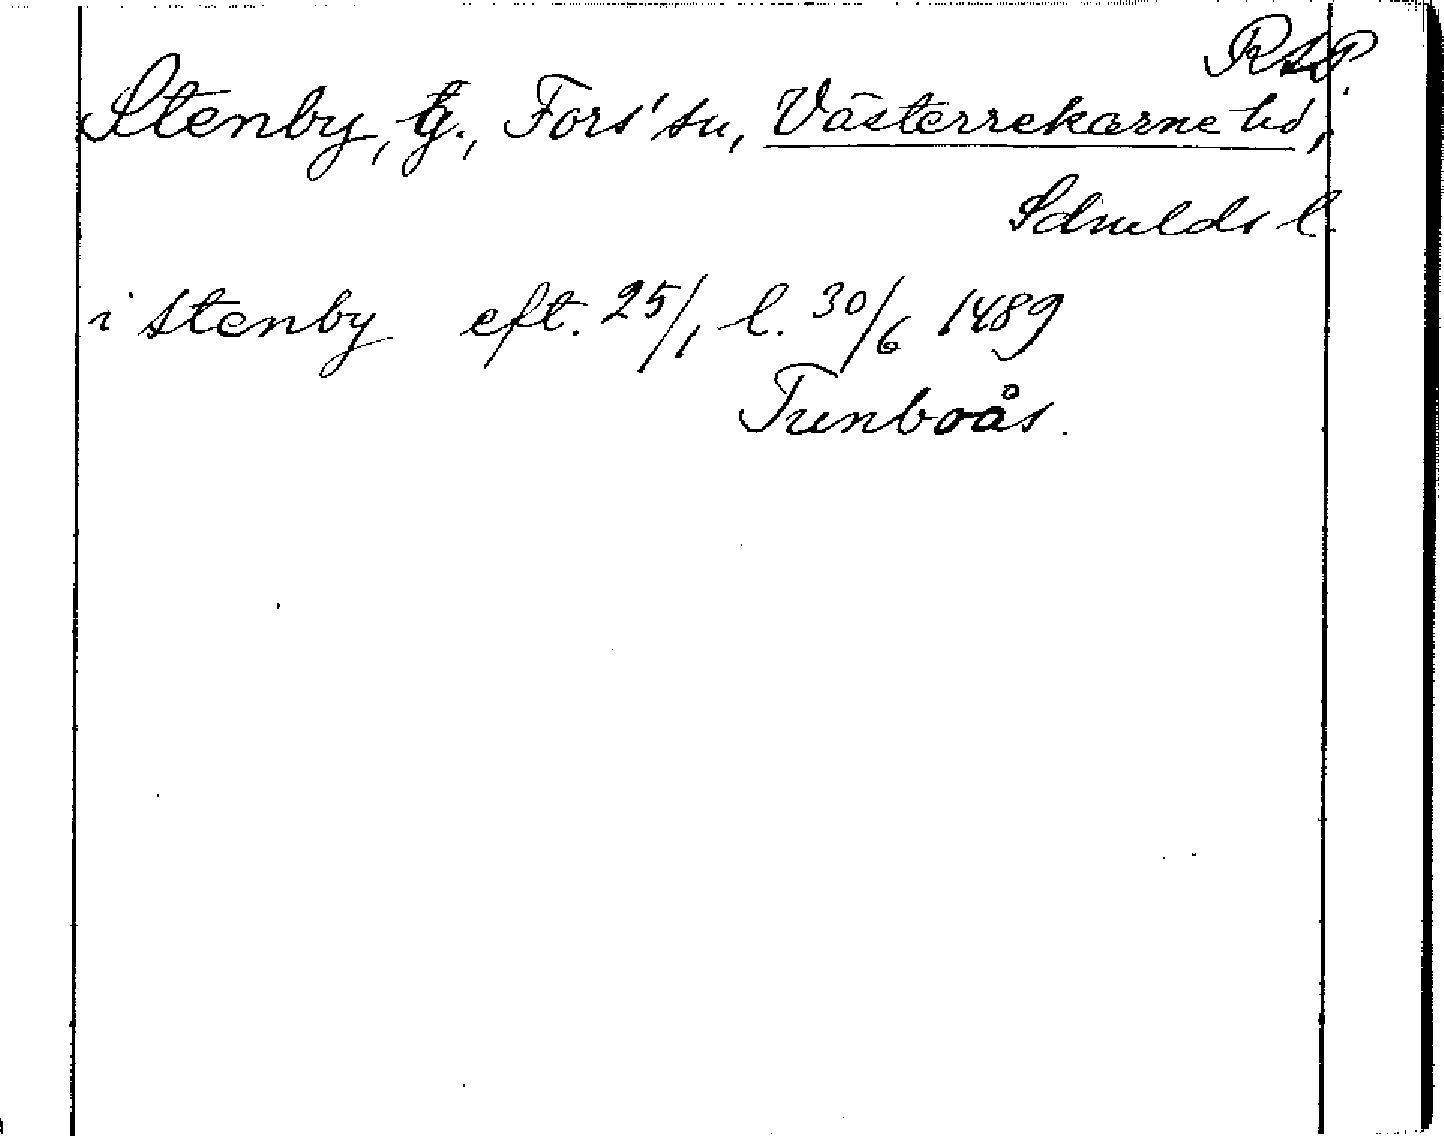 RAP.
Stenby, g., Fors' sn, Västerrekarne hd,
Sdmlds l
i stenby eft. 25/1, l. 30/6 1489
Tunboås.